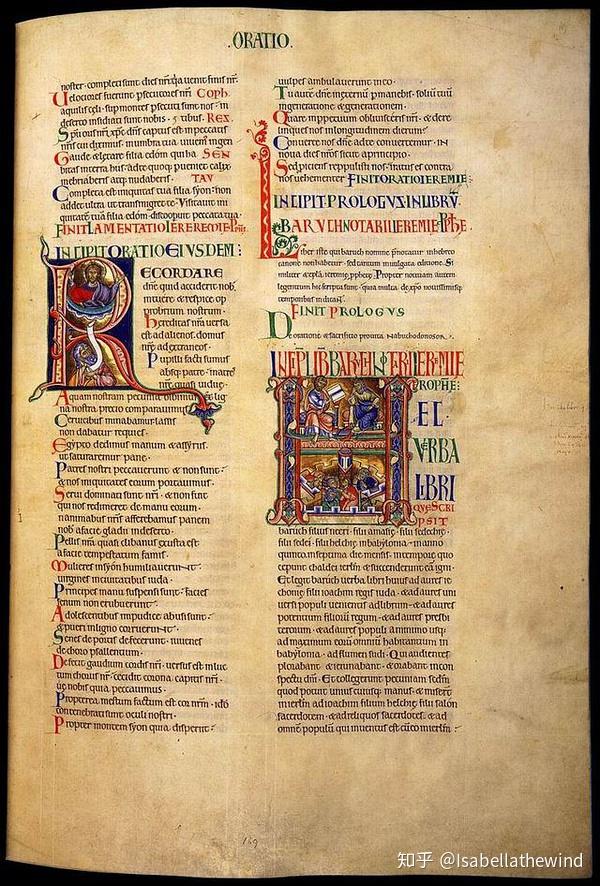 .ORATIO.
noster completi sunt dies nri qa uenit finis nr.
Velociores fuerunt psecutores nri COPH.
aquilis celi: sup montes psecuti sunt nos in
deserto insidiati sunt nobis. RES.
Spiritus oris nri xpc dns captus est in peccatis
nris cui diximus in umbra tua uiuem in gen
Gaude & letare filia edom quę habitas SEN
mebriaberis atq nudaberis. TAV
Completa est iniquitas tua filia syon: non
addet ultra ut transmigret te. Visitauit ini
quitatē tuā filia edom discoopuit peccata tua.
FINIT LAMENTATIO IEREMIE
INCIPIT ORATIO EIVSDEM:
RECORDARE
dne quid acciderit nob.
intuere & respice op
probrium nostrum.
Hereditas nra uersa
est ad alienos. domus
nre ad extraneos.
Pupilli facti sumus
absq patre. matres
nre quasi uidue.
Aquam nostram pecunia bibimus. lig
na nostra precio comparauimus.
Ceruicibus minabamur lassis
non dabatur requies.
Egypto dedimus manum & assyriis.
ut saturaremur pane.
Patres nostri peccauerunt & non sunt.
& nos iniquitates eorum portauimus.
Serui dominati sunt nri. & non fuit
qui nos redimeret de manu eorum.
In animabus nris afferebamus panem
nob a facie gladii in deserto.
Pellis nra quasi clibanus exusta est
a facie tempestatum famis.
Mulieres in syon humiliauerunt.
uirgines in ciuitatibus iuda.
Principes manu suspensi sunt. facies
senum non erubuerunt.
Adolescentibus impudice abusi sunt.
& pueri in ligno corruerunt.
Senes de portis defecerunt. iuuenes
de choro psallentium.
Defecit gaudium cordis nri. uersus est in luc
tum chorus nr. cecidit corona capitis nri.
uę nobis quia peccauimus.
Propterea mestum factum est cor nrm. ido
contenebrati sunt oculi nostri.
Propter montem syon quia disperiit.
uulpes ambulauerunt in eo.
Tu autē dne in eternū pmanebis. soliū tuū
in generatione & generationem.
Quare in perpetuum obliuisceris nri. & dere
linques nos in longitudinem dierum.
Conuerte nos dne ad te & conuertemur. in
noua dies nros sicut a principio.
Sed piciens reppulisti nos. iratus es contra
nos uehementer. FINIT ORATIO IEREMIE.
INCIPIT PROLOGVS IN LIBRV
BARVCH NOTARII IEREMIE PPHE.
Liber iste qui baruch nomine pnotatur in hebreo
canone non habetur. sed tantum in uulgata editione. Si
militer & epla ieremie pphete. Propter notitiam autem
legentium hic scripta sunt. quia multa de xpo nouissimisq
temporibus indicat.
FINIT PROLOGVS
De oratione & sacrificio pro uita Nabuchodonosor.
INCIPIT LIBER BARVCH NOTARII IEREMIE
PROPHE:
ET
VERBA
LIBRI
QVE SCRI
PSIT
baruch filius neri. filii amasie. filii sedechie.
filii sedei. filii helchie in babylonia. in anno
quinto. in septima die mensis. in tempore quo
ceperunt chaldei ierlm. & succenderunt eā igni.
Et legit baruch uerba libri huius ad aures ie
chonie filii ioachim regis iuda. & ad aures uni
uersi populi uenientis ad librum. & ad aures
potentium filiorū regum. & ad aures presbi
terorum. & ad aures populi a minimo usq
ad maximum eorū omniū habitantium in
babylonia. ad flumen sudi. Qui audientes
plorabant & ieiunabant. & orabant in con
spectu dni. Et collegerunt pecuniam secdm
quod potuit uniuscuiusq manus. & miserunt
in ierlm ad ioachim filium helchie filii salon
sacerdotem. & ad reliquos sacerdotes. & ad
omnē populū qui inuenti est cū eo in ierlm.
169
知乎 @Isabellathewind